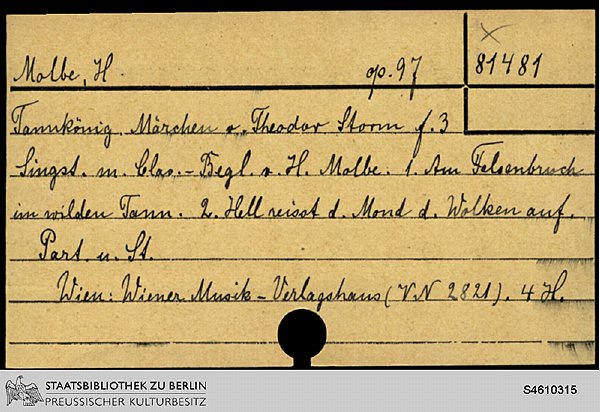 Molbe, H. op. 97 81481
Tannkönig. Märchen v. Theodor Storm f. 3
Singst. m. Clav.-Begl. v. H. Molbe. 1. Am Felsenbruch
im wilden Tann. 2. Hell reisst d. Mond d. Wolken auf.
Part. u. St.
Wien: Wiener Musik-Verlagshaus (VN 2821). 4 H.
STAATSBIBLIOTHEK ZU BERLIN
PREUSSISCHER KULTURBESITZ
S4610315